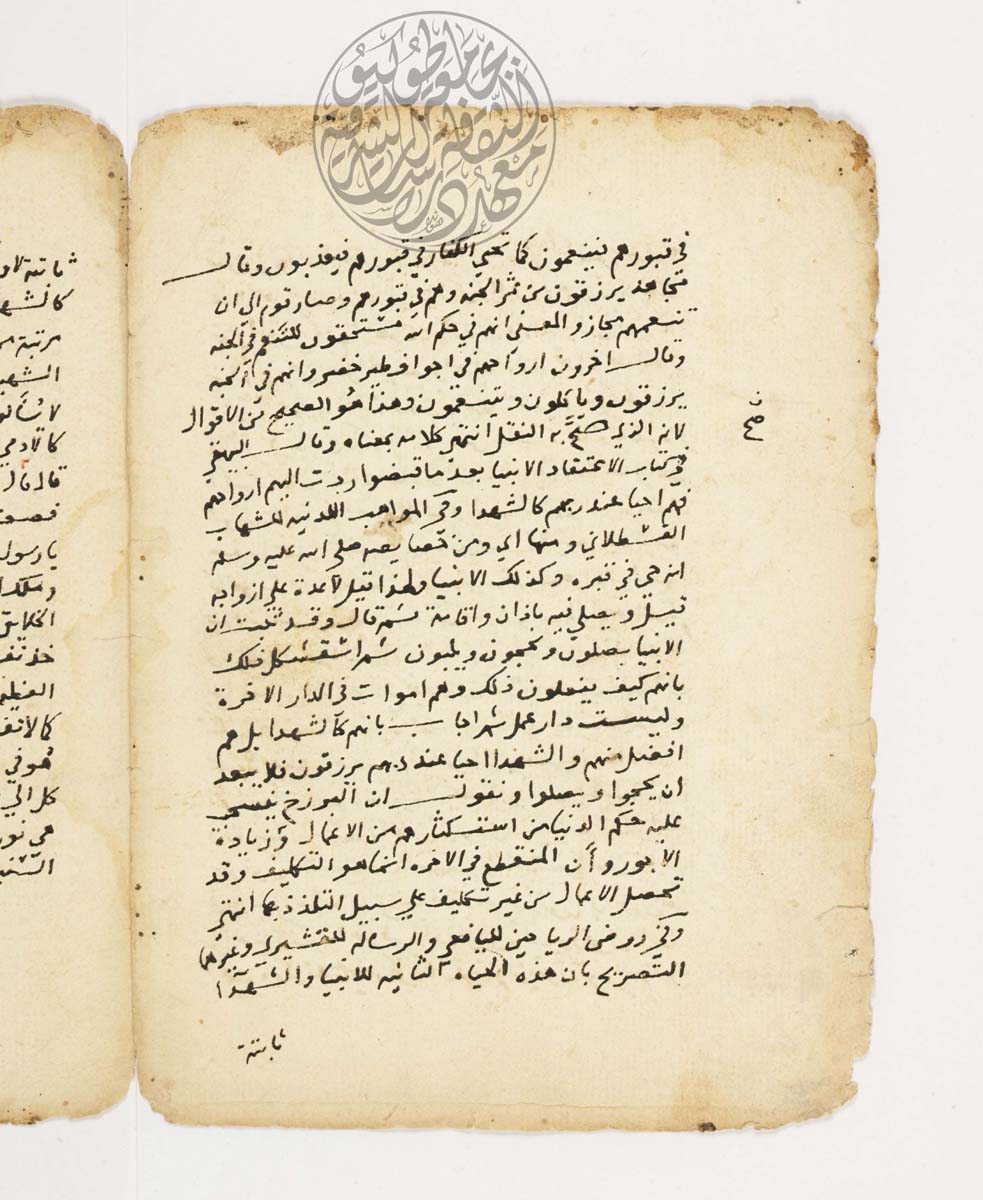 في قبورهم فينعمون كما تحيي الكفار في قبورهم فيعذبون وقال
مجاهد يرزقون من ثمر الجنه وهم في قبورهم وصار قوم الي ان
تنعمهم مجاز والمعني انهم في حكم الله مستحقون للتنعم في الجنه
وقال اخرون ارواحهم في اجواف طير خضر وانهم في الجنه
يرزقون وياكلون ويتنعمون وهذا هو الصحيح من الاقوال
لانه الذي صح به النقل انتهي كلامه بمعناه وقال البيهقي
في كتاب الاعتقاد الانبيا بعد ما قبضوا ردت اليهم ارواحهم
فهم احيا عند ربهم كالشهدا وفي المواهب اللدنيه للشهاب
القسطلاني ومنها اي ومن خصايصه صلي الله عليه وسلم
انه حي في قبره وكذلك الانبيا ولهذا قيل لا عدة علي ازواجه
قيل ويصلي فيه باذان واقامة ثم قال وقد ثبت ان
الانبيا يصلون ويحجون ويلبون ثم استشكل ذلك
بانهم كيف يفعلون ذلك وهم اموات في الدار الاخرة
وليست دار عمل ثم اجاب بانهم كالشهدا بل هم
افضل منهم والشهدا احيا عند ربهم يرزقون فلا يبعد
ان يحجوا ويصلوا ونقول ان البرزخ ينسحب
عليه حكم الدنيا من استكثارهم من الاعمال وزيادة
الاجور وأن المنقطع في الاخره انما هو التكليف وقد
تحصل الاعمال من غير تكليف علي سبيل التلذذ بها انتهي
وفي روض الرياحين لليافعي والرساله للقشيري وغيرهما
التصريح بان هذه الحياه الثانيه للانبيا والشهدا
ثابتة
صح
ثابتة
كالشهد
مرتبة
كالادمي
قال قال
يا رسول
هو في
كل الي
هي نور